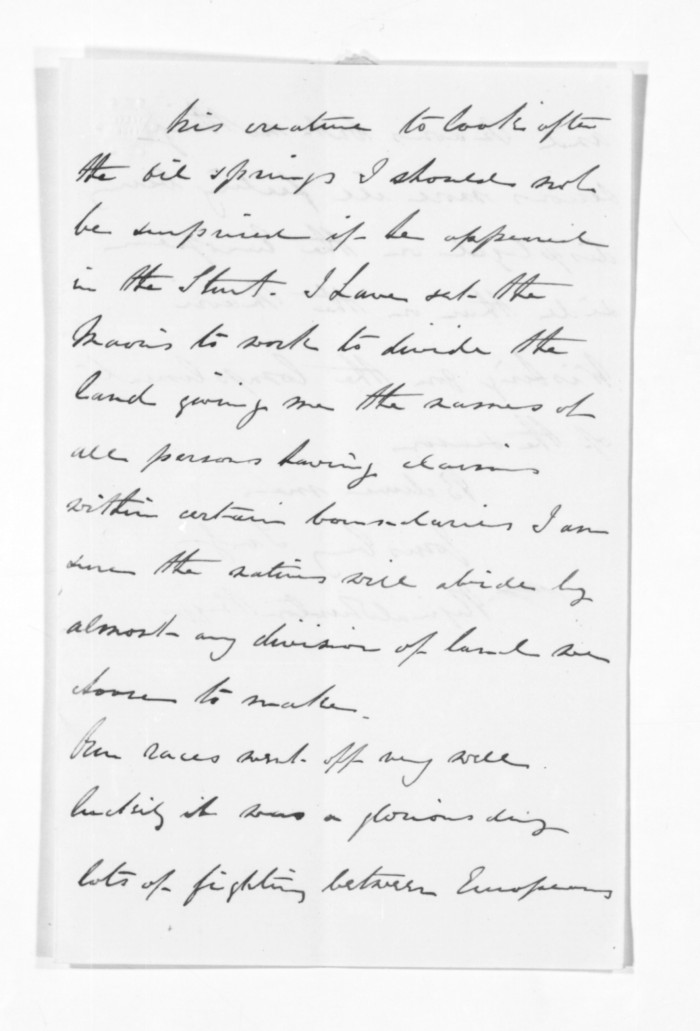 his creature to look after
the oil springs I should not
be surprised if he appeared
in the Sturt. I have set the
Maoris to work to divide the
land giving me the names of
all persons having claims
within certain boundaries I am
sure the natives will abide by
almost any division of land we
choose to make.
Our races went off very well.
luckily it was a glorious day
lots of fighting between Europeans